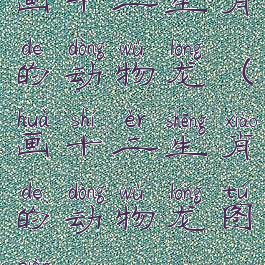 画十二生肖
de dòng wù lóng
的动物龙(
huà shí èr shēng xiào
画十二生肖
de dòng wù lóng tú
的动物龙图